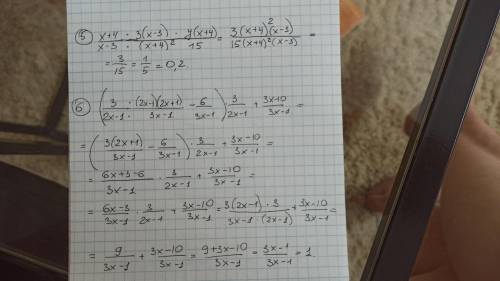 ⑤ (x+4)/(x-3) · 3(x-3)/(x+4)² · y(x+4)/15 = 3(x+4)²(x-3)/15(x+4)²(x-3) =
= 3/15 = 1/5 = 0,2
⑥ (3/(2x-1) · (2x-1)(2x+1)/(3x-1) - 6/(3x-1)) · 3/(2x-1) + (3x-10)/(3x-1) =
= (3(2x+1)/(3x-1) - 6/(3x-1)) · 3/(2x-1) + (3x-10)/(3x-1) =
= (6x+3-6)/(3x-1) · 3/(2x-1) + (3x-10)/(3x-1) =
= (6x-3)/(3x-1) · 3/(2x-1) + (3x-10)/(3x-1) = 3(2x-1)·3/(3x-1·(2x-1)) + (3x-10)/(3x-1) =
= 9/(3x-1) + (3x-10)/(3x-1) = (9+3x-10)/(3x-1) = (3x-1)/(3x-1) = 1